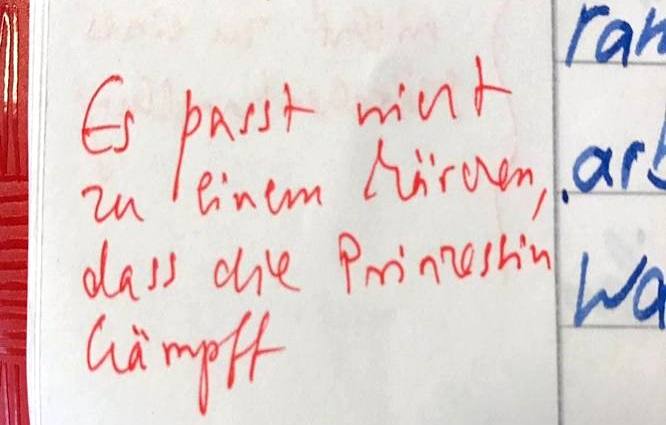 Es passt nicht
zu einem Märchen,
dass die Prinzessin
kämpft
ran
arb
wa